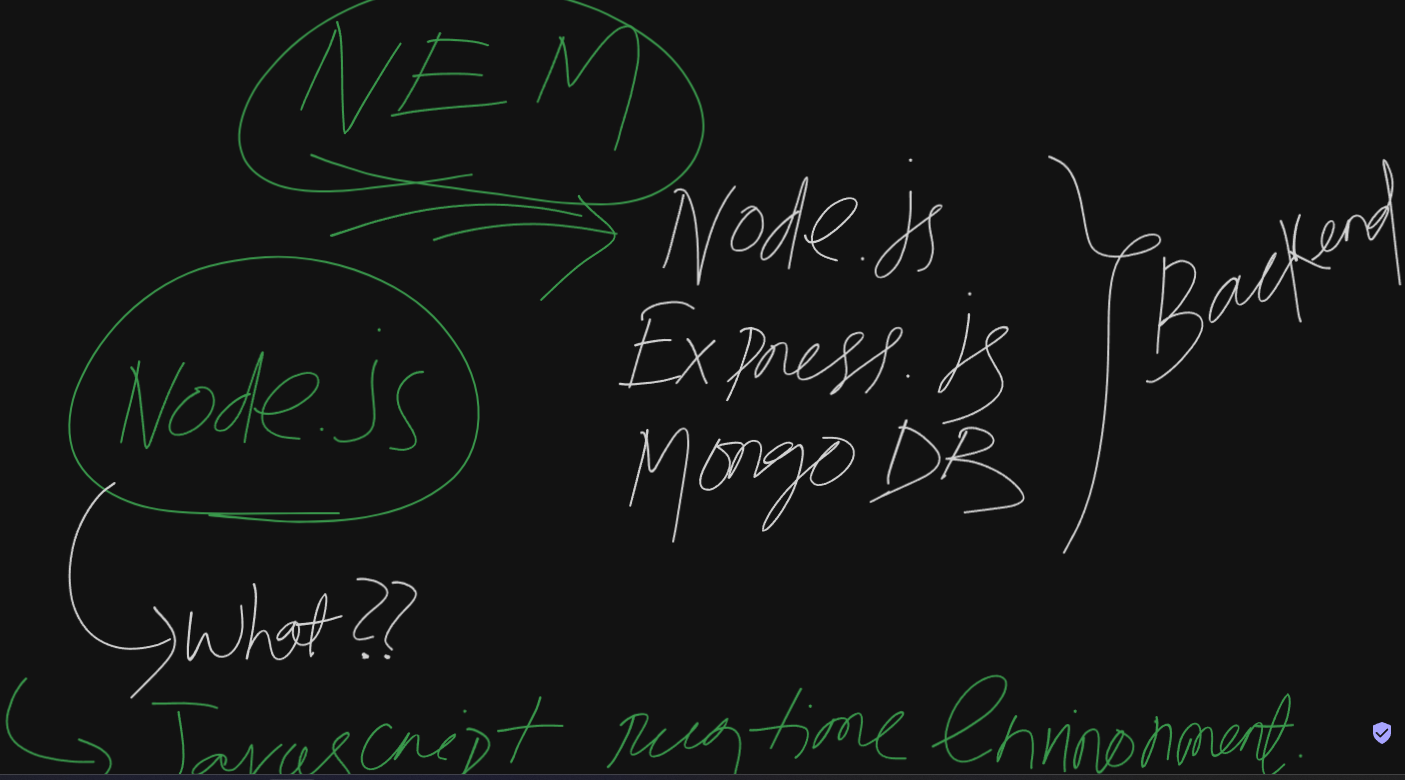 NEM
Node.js
Express.js
MongoDB
Backend
Node.js
What??
Javascript runtime Environment.